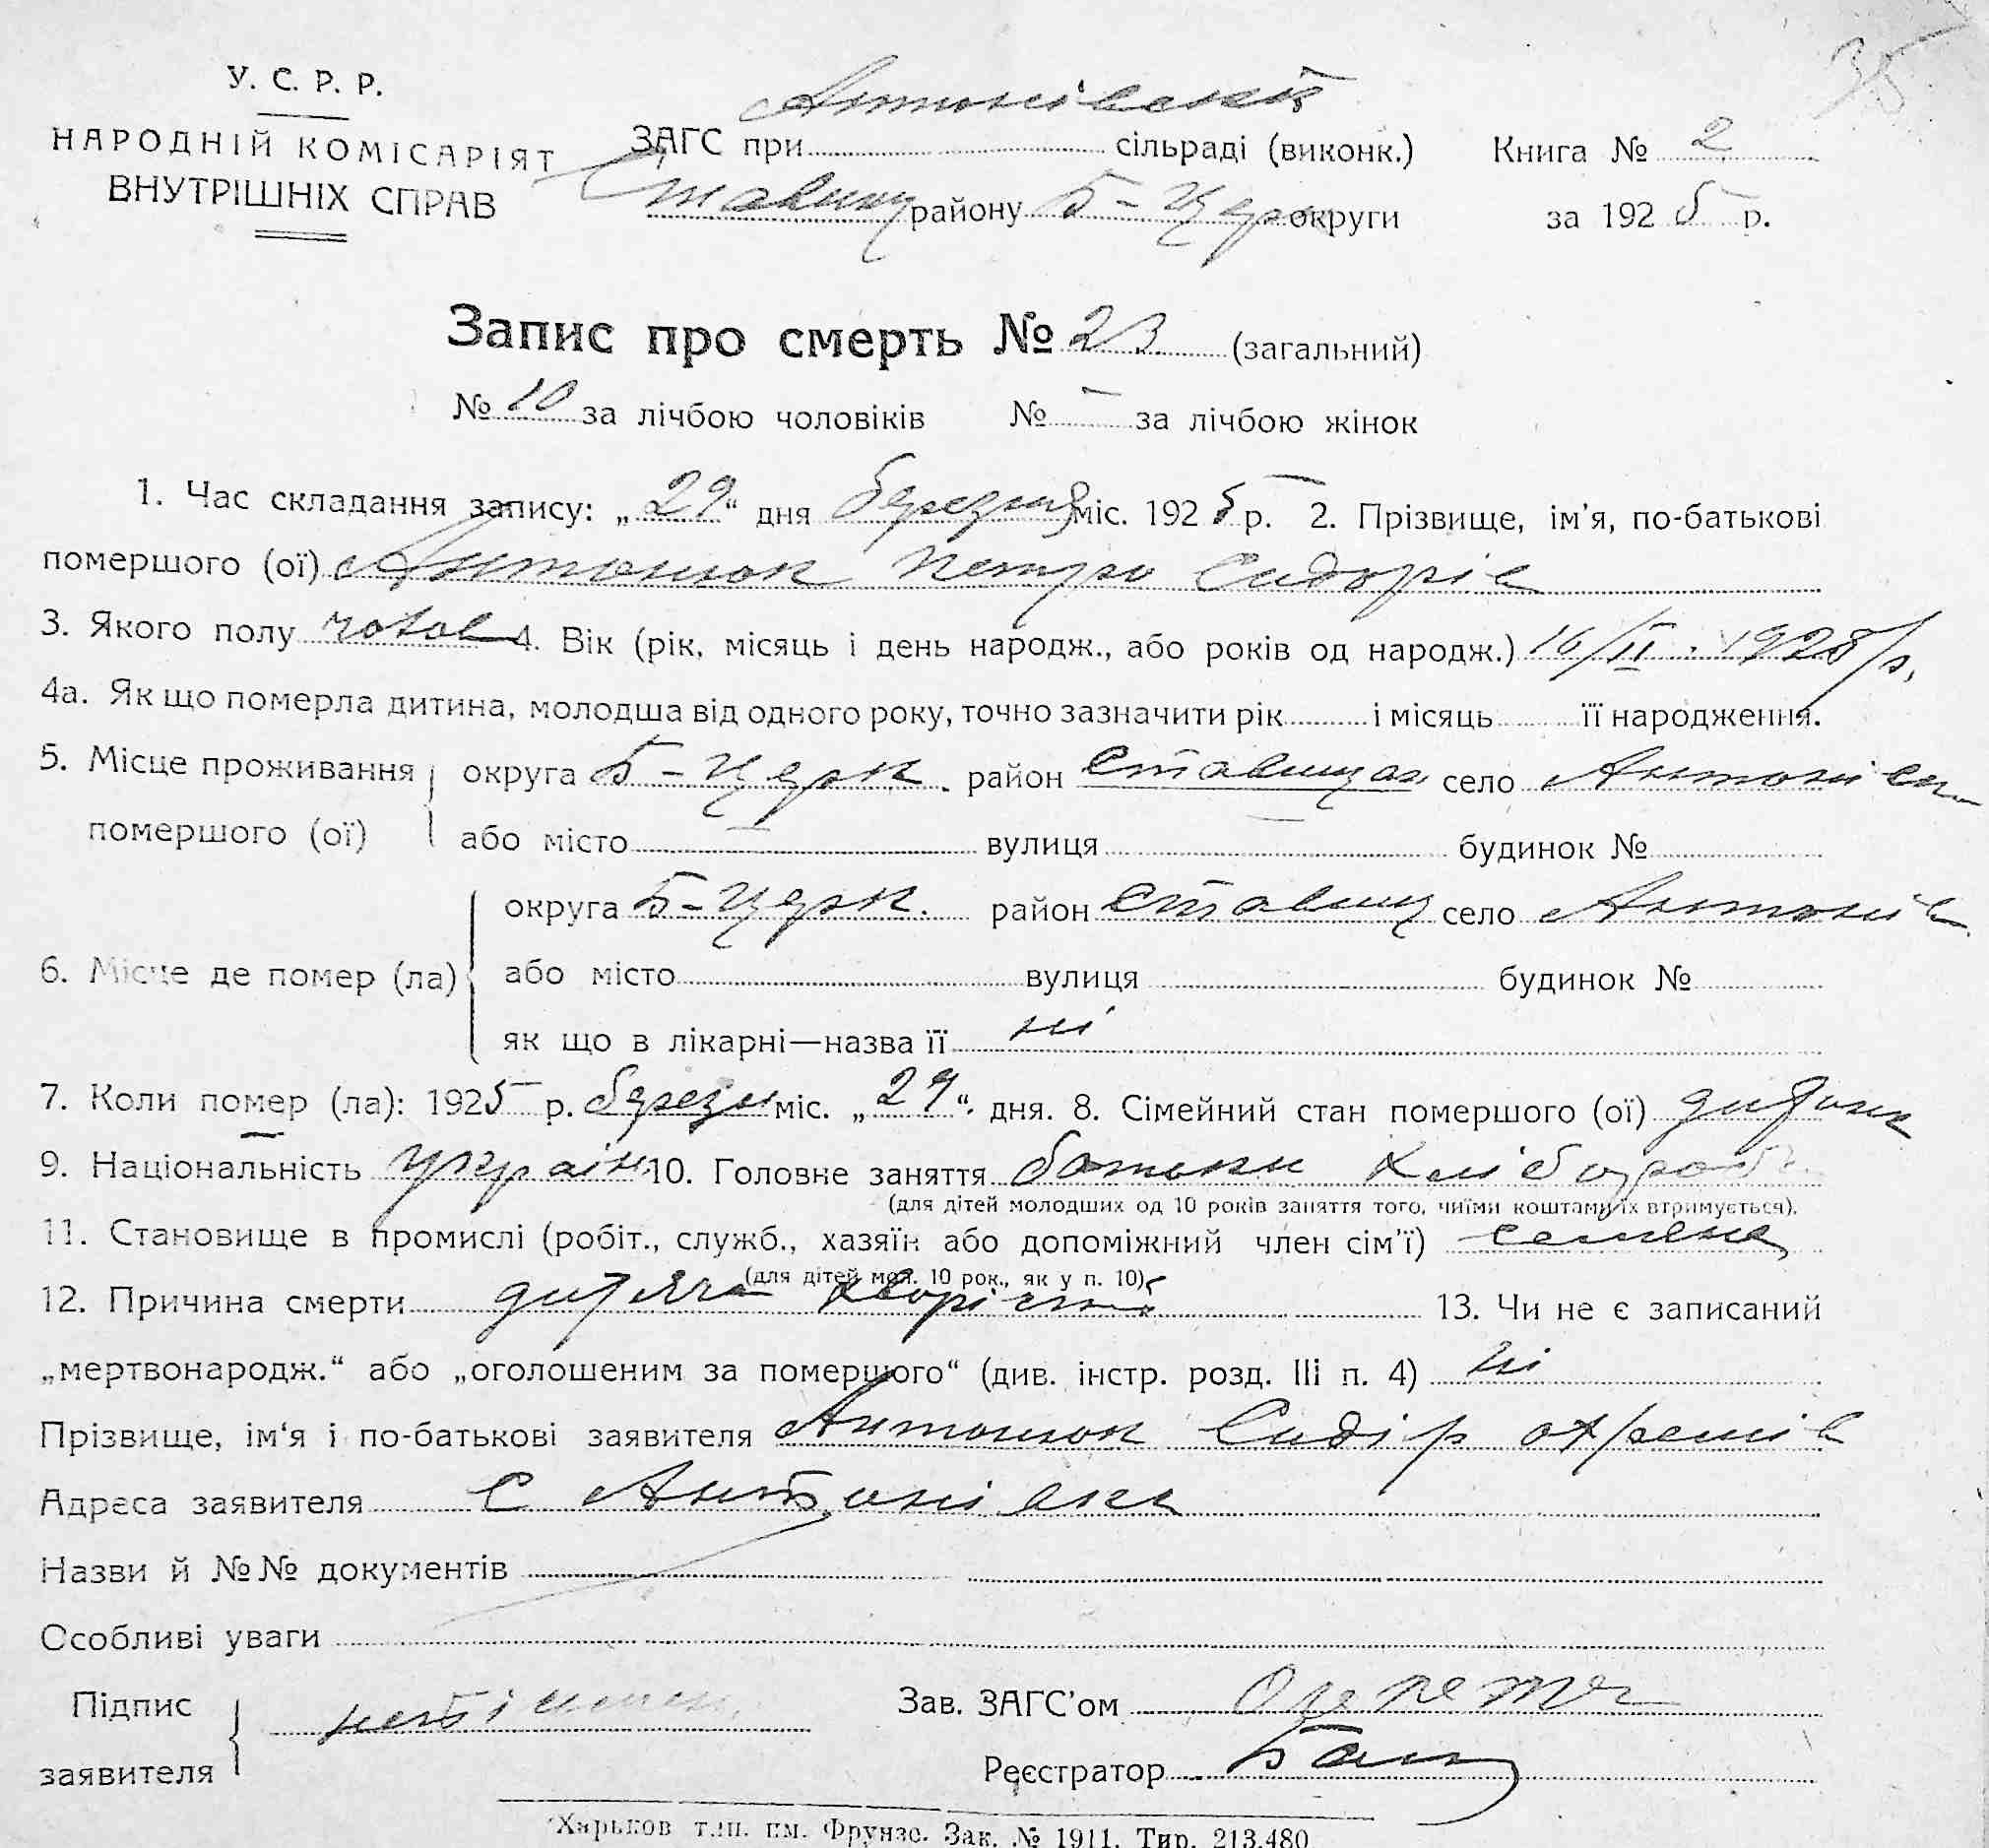 35
У. С. Р. Р.
НАРОДНІЙ КОМІСАРІЯТ
ВНУТРІШНІХ СПРАВ
ЗАГС при Антонівській сільраді (виконк.)
Книга № 2
Ставищ району Б-Церк округи
за 1925 р.
Запис про смерть № 23 (загальний)
№ 10 за лічбою чоловіків № – за лічбою жінок
1. Час складання запису: „29“ дня березня міс. 1925 р. 2. Прізвище, ім'я, по-батькові
помершого (ої) Антонюк Петро Сидорів
3. Якого полу чолов 4. Вік (рік, місяць і день народж., або років од народж.) 16/II. 1923 р.
4а. Як що померла дитина, молодша від одного року, точно зазначити рік і місяць її народження.
5. Місце проживання помершого (ої) округа Б-Церк. район Ставищан село Антонівк
або місто — вулиця — будинок №
6. Місце де помер (ла) округа Б-Церк. район Ставищ село Антонів
або місто вулиця будинок №
як що в лікарні—назва її ні
7. Коли помер (ла): 1925 р. березн міс. „29“ дня. 8. Сімейний стан помершого (ої) дитина
9. Національність україн 10. Головне заняття батьки хлібороб
(для дітей молодших од 10 років заняття того, чиїми коштами їх втримується).
11. Становище в промислі (робіт., служб., хазяїн або допоміжний член сім'ї)
(для дітей мол. 10 рок., як у п. 10)
12. Причина смерти дитяча хворість 13. Чи не є записаний
„мертвонародж.“ або „оголошеним за помершого“ (див. інстр. розд. III п. 4) ні
Прізвище, ім'я і по-батькові заявителя Антонюк Сидір Охремів
Адреса заявителя с Антонівка
Назви й №№ документів
Особливі уваги
Підпис заявителя
Зав. ЗАГС'ом
Реєстратор
Харьков тип. им. Фрунзе. Зак. № 1911. Тир. 213.480